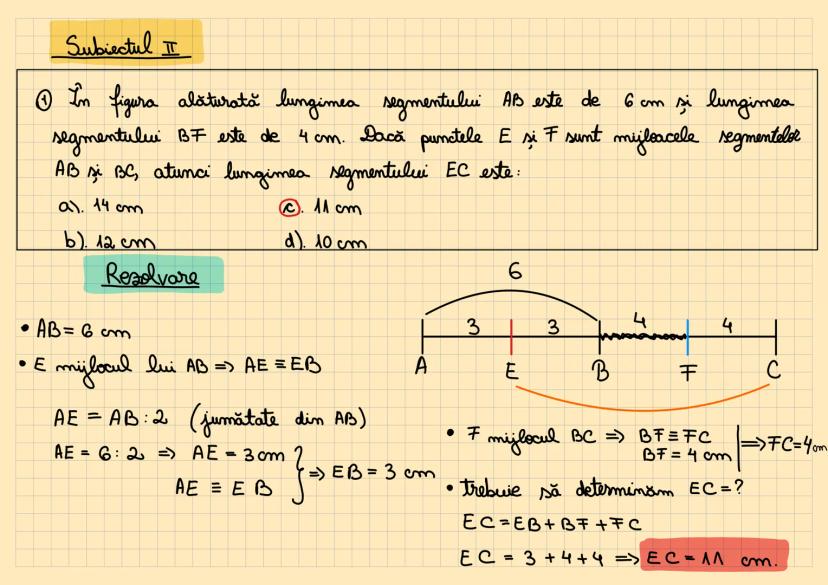 Subiectul II
① În figura alăturată lungimea segmentului AB este de 6 cm și lungimea
segmentului BF este de 4 cm. Dacă punctele E și F sunt mijloacele segmentelor
AB și BC, atunci lungimea segmentului EC este:
a). 14 cm c). 11 cm
b). 12 cm d). 10 cm
Rezolvare
• AB = 6 cm
• E mijlocul lui AB => AE ≡ EB
AE = AB : 2 (jumătate din AB)
AE = 6 : 2 => AE = 3 cm
AE ≡ EB } => EB = 3 cm
6
3 3 4 4
A E B F C
• F mijlocul BC => BF ≡ FC
BF = 4 cm | => FC = 4 cm
• trebuie să determinăm EC = ?
EC = EB + BF + FC
EC = 3 + 4 + 4 => EC = 11 cm.